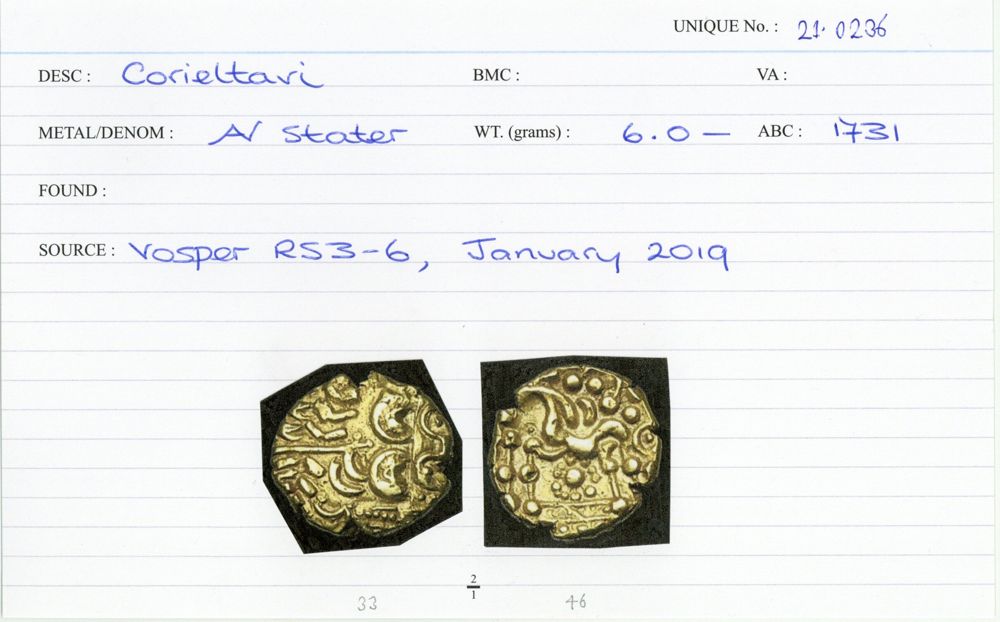 UNIQUE No. : 21.0236
DESC : Corieltavi BMC : VA :
METAL/DENOM : AV Stater WT. (grams) : 6.0 — ABC : 1731
FOUND :
SOURCE : Vosper RS3-6, January 2019
2
1
33 46